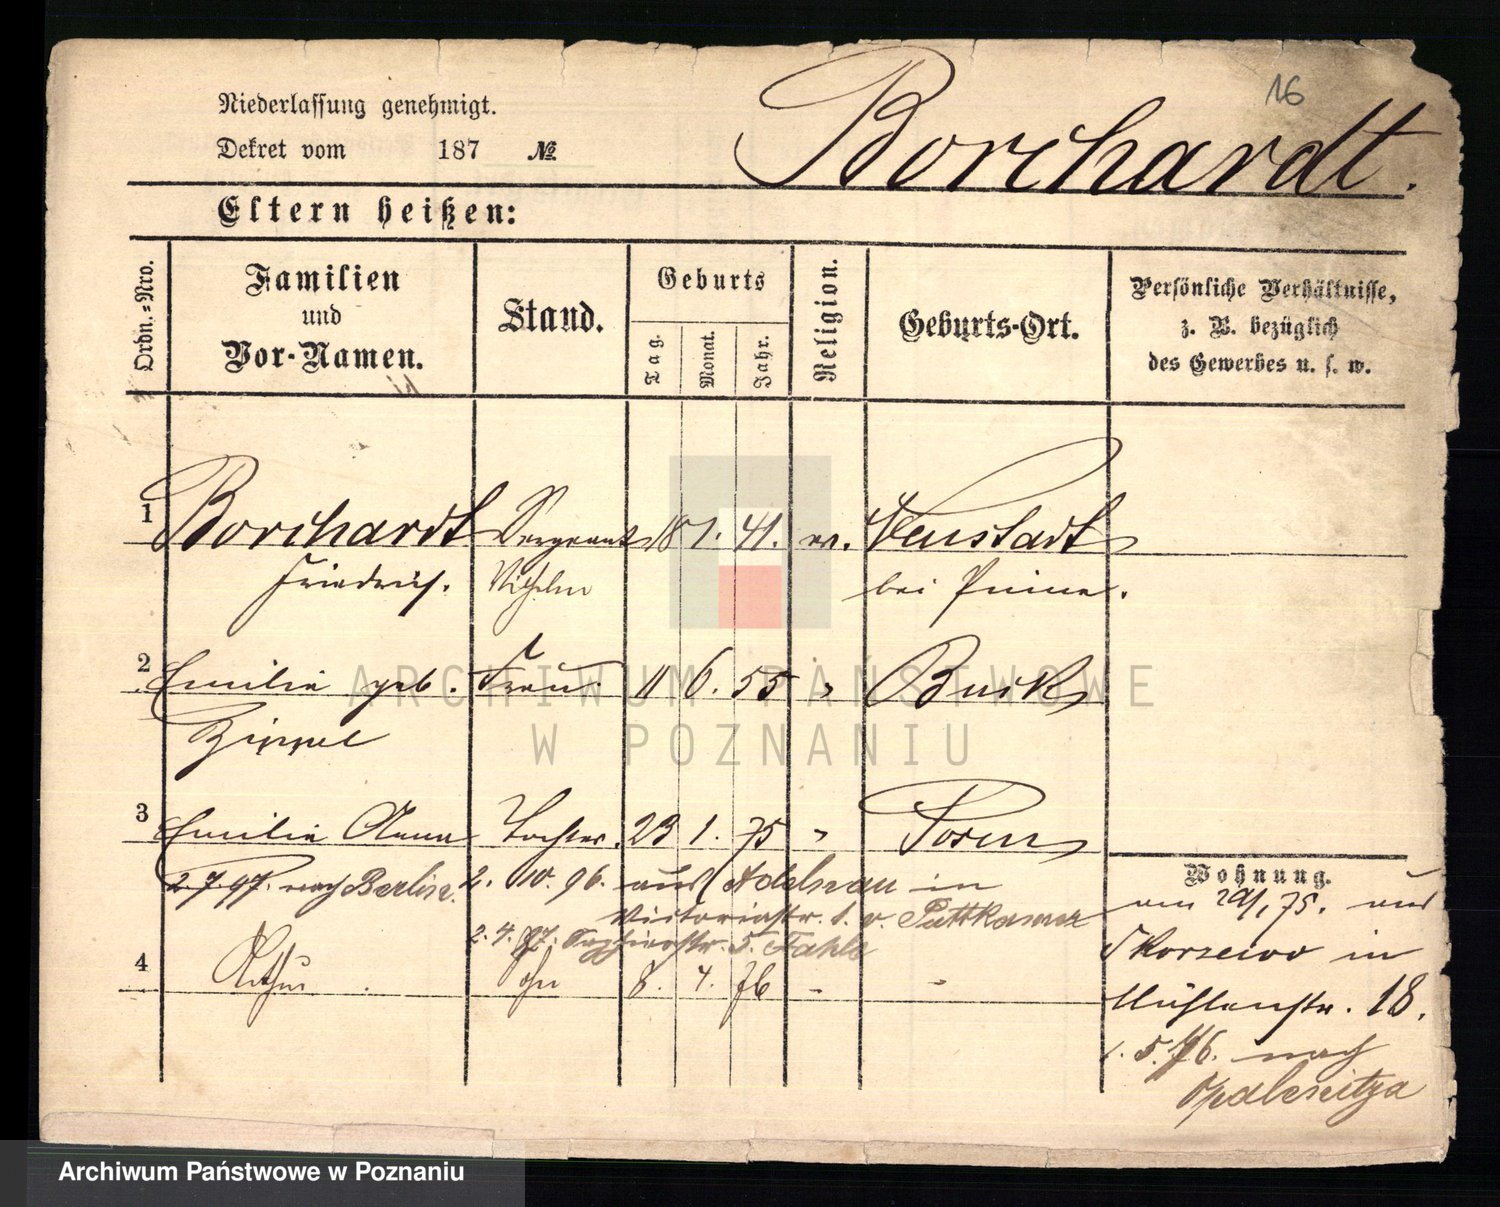 16
Niederlassung genehmigt.
Borchardt.
Dekret vom 187 №
Eltern heißen:
Ordn.-Nro.
Familien
und
Vor-Namen.
Stand.
Geburts
Tag.
Monat.
Jahr.
Religion.
Geburts-Ort.
Persönliche Verhältnisse,
z. B. bezüglich
des Gewerbes u. s. w.
1 Borchardt Sergeant 18 1. 41. ev. Neustadt
Friedrich. Wilhelm bei Pinne.
2 Emilie geb. Frau 11 6. 55 " Buk
Zippel
3 Emilie Anna Tochter. 23 1. 75 " Posen
Wohnung.
2.7.97. nach Berlin. 2. 10. 96. aus Adelnau in
Victoriastr. 1. v. Puttkamer
2. 4. 97. 5. Fahle
4 Arthur 8. 4. 76 - -
am 29/1 75. aus
Skorzewo in
Mühlenstr. 18.
5. 76. nach
Opalenitza
ARCHIWUM PAŃSTWOWE
W POZNANIU
Archiwum Państwowe w Poznaniu